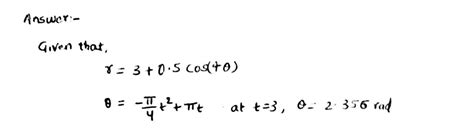 Answer:-
Given that,
r = 3 + 0.5 cos(4θ)
θ = -π/4 t² + πt at t=3, θ = 2.356 rad